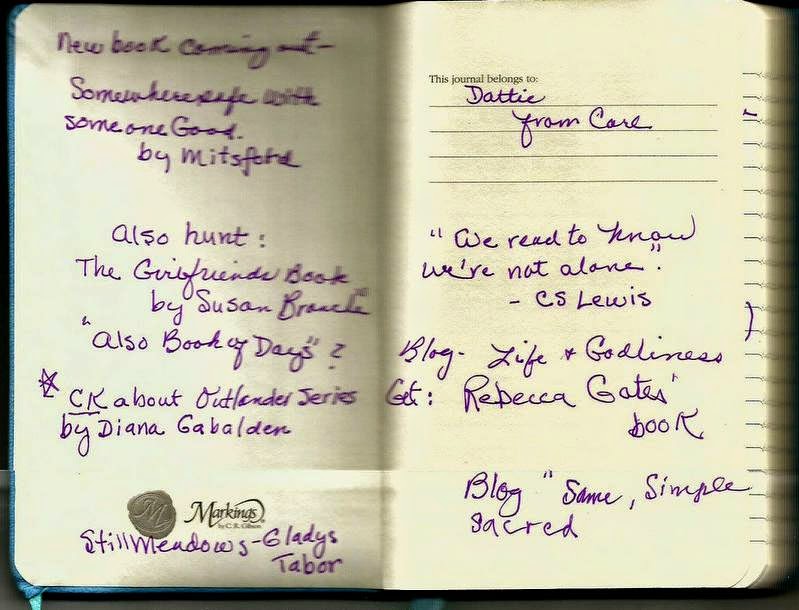 New book coming out-
Somewhere safe with
someone Good.
by Mitsford
Also hunt:
The Girlfriends Book
by Susan Branch
"Also Book of Days"?
CK about Outlander Series
by Diana Gabalden
M
Markings
by C.R. Gibson
StillMeadows-Gladys
Tabor
This journal belongs to:
Dattie
from Care
"We read to know
we're not alone".
- CS Lewis
Blog- Life & Godliness
Get: Rebecca Gates'
book
Blog "Same, Simple
Sacred